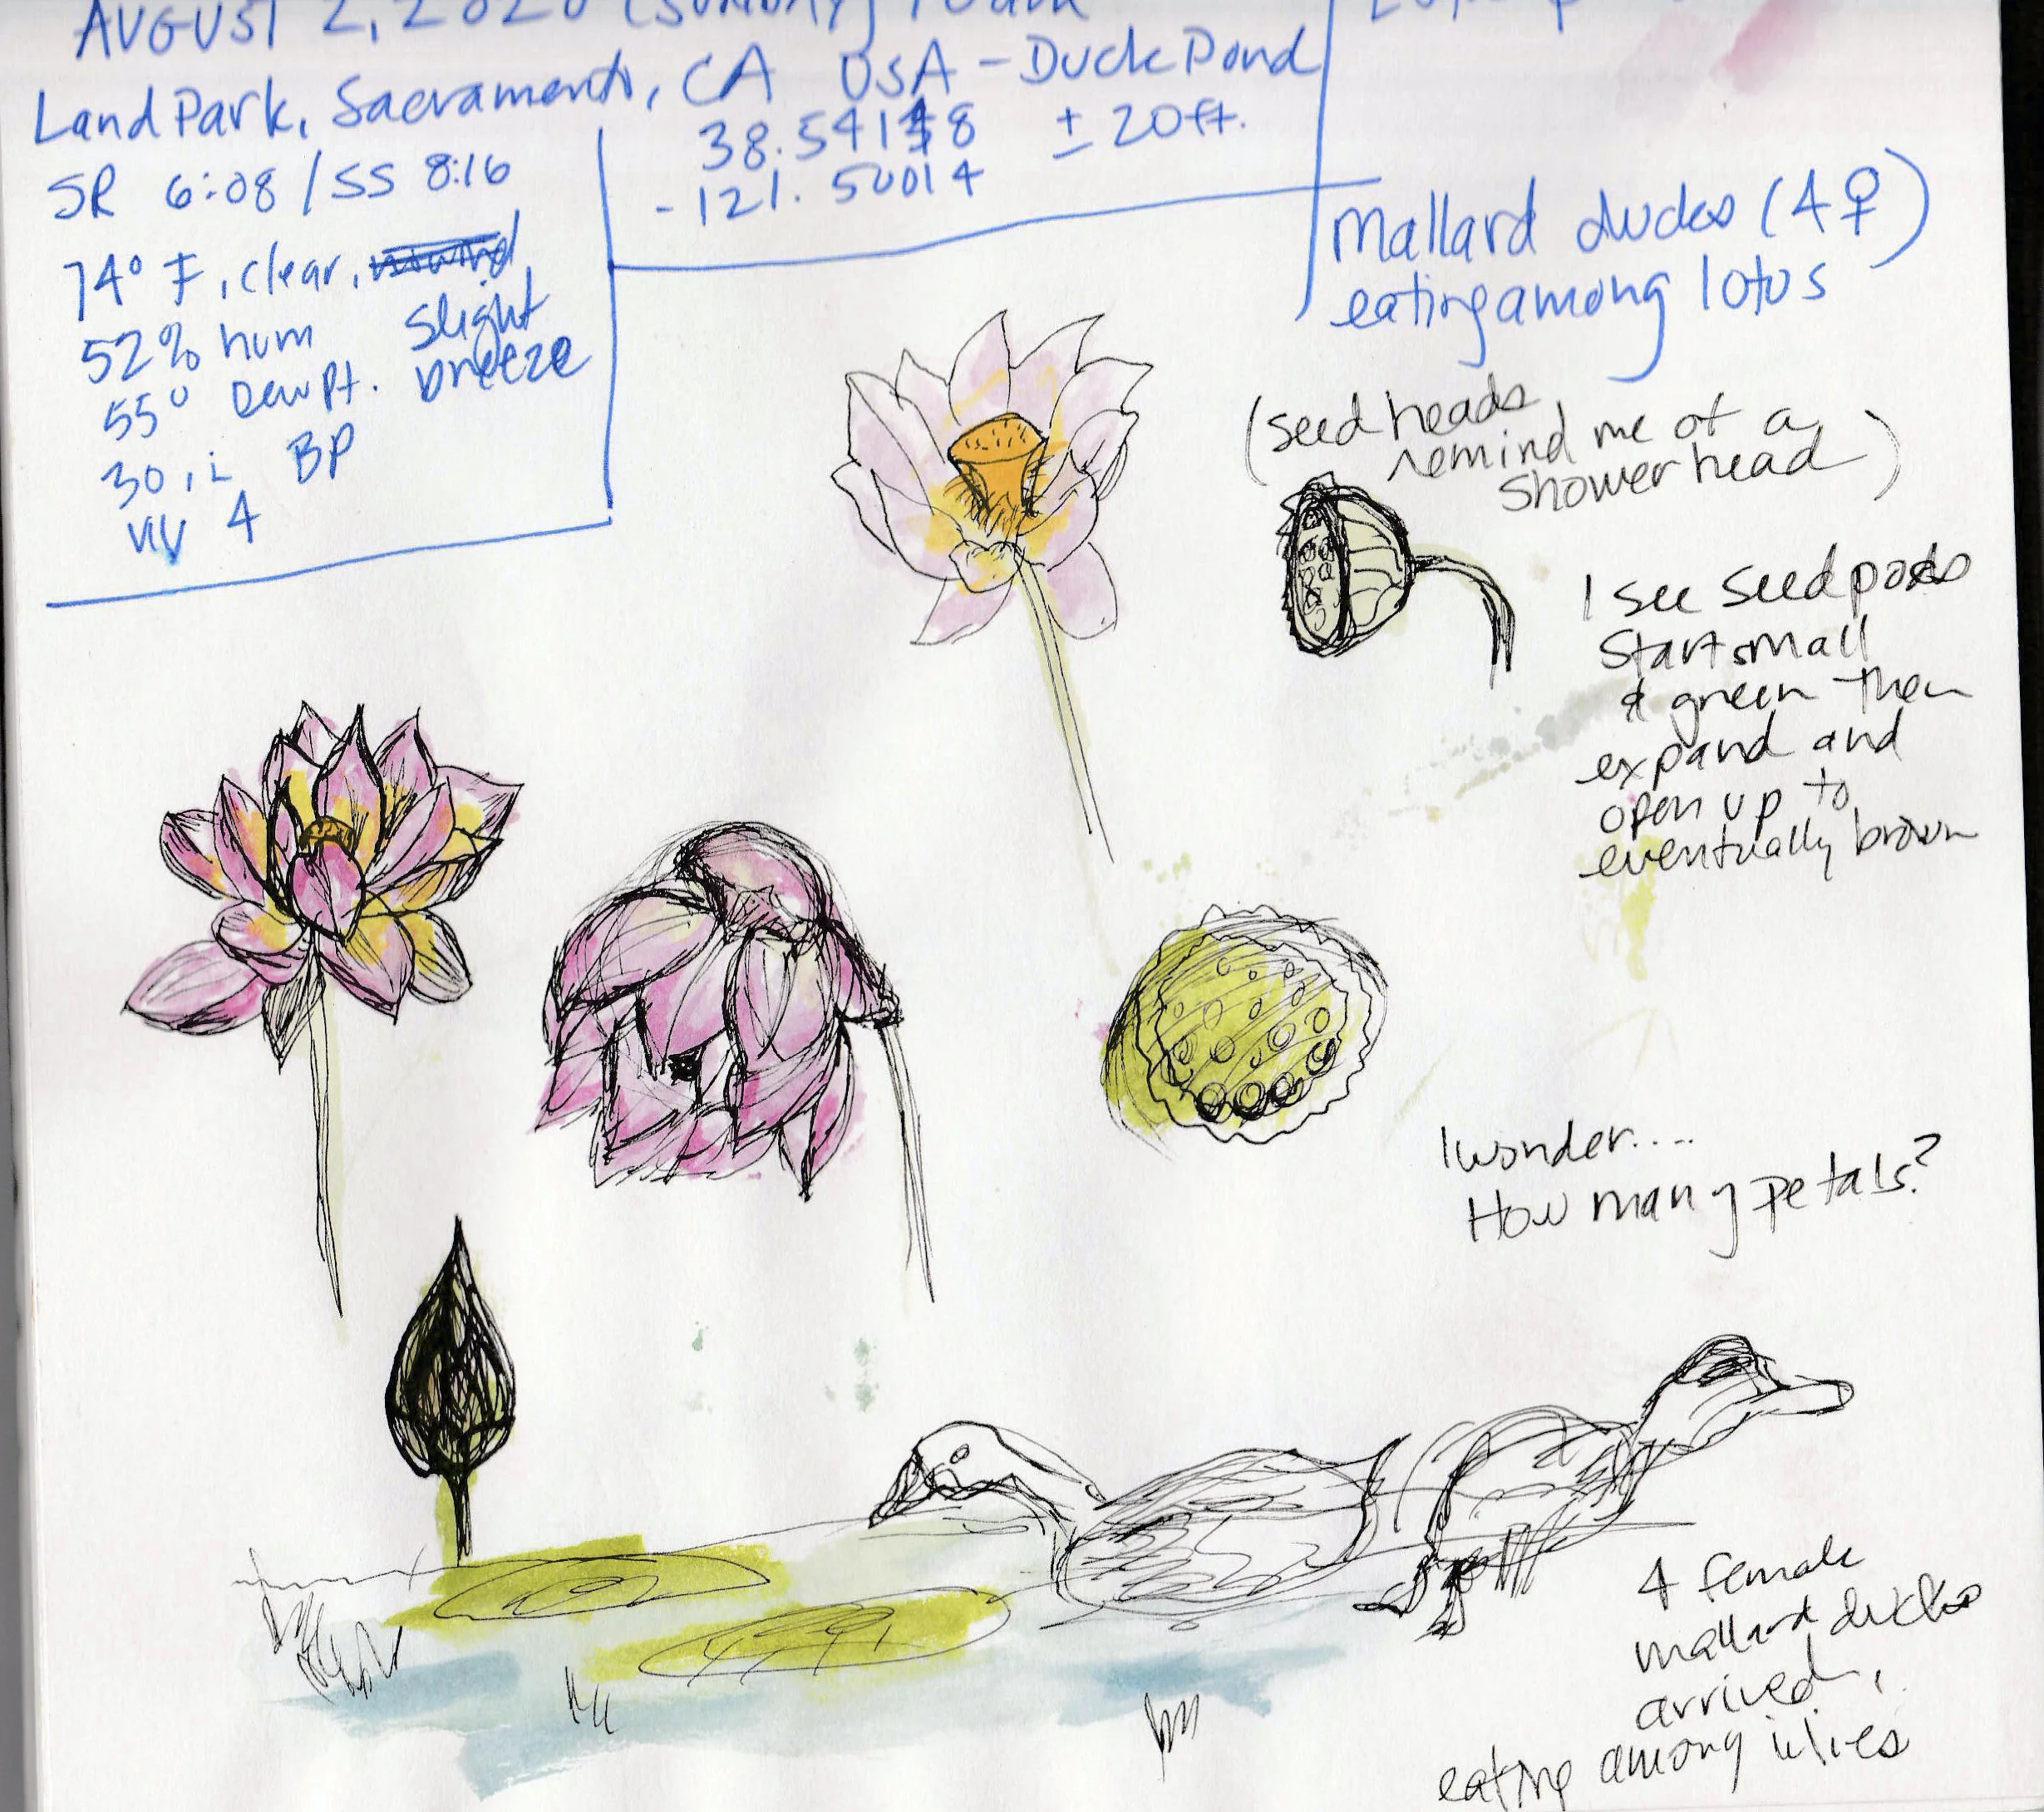 AUGUST 2, 2020 (SUNDAY) 10am
Land Park, Sacramento, CA USA - Duck Pond
38.54148 ± 20ft.
-121.50014
SR 6:08 / SS 8:16
74° F, clear,
slight
breeze
52% hum
55° Dew Pt.
30, i BP
UV 4
Mallard ducks (4 ♀)
eating among lotus
(seed heads
remind me of a
shower head)
I see seed pods
start small
& green then
expand and
open up to
eventually brown
I wonder....
How many petals?
4 female
mallard ducks
arrived,
eating among lilies